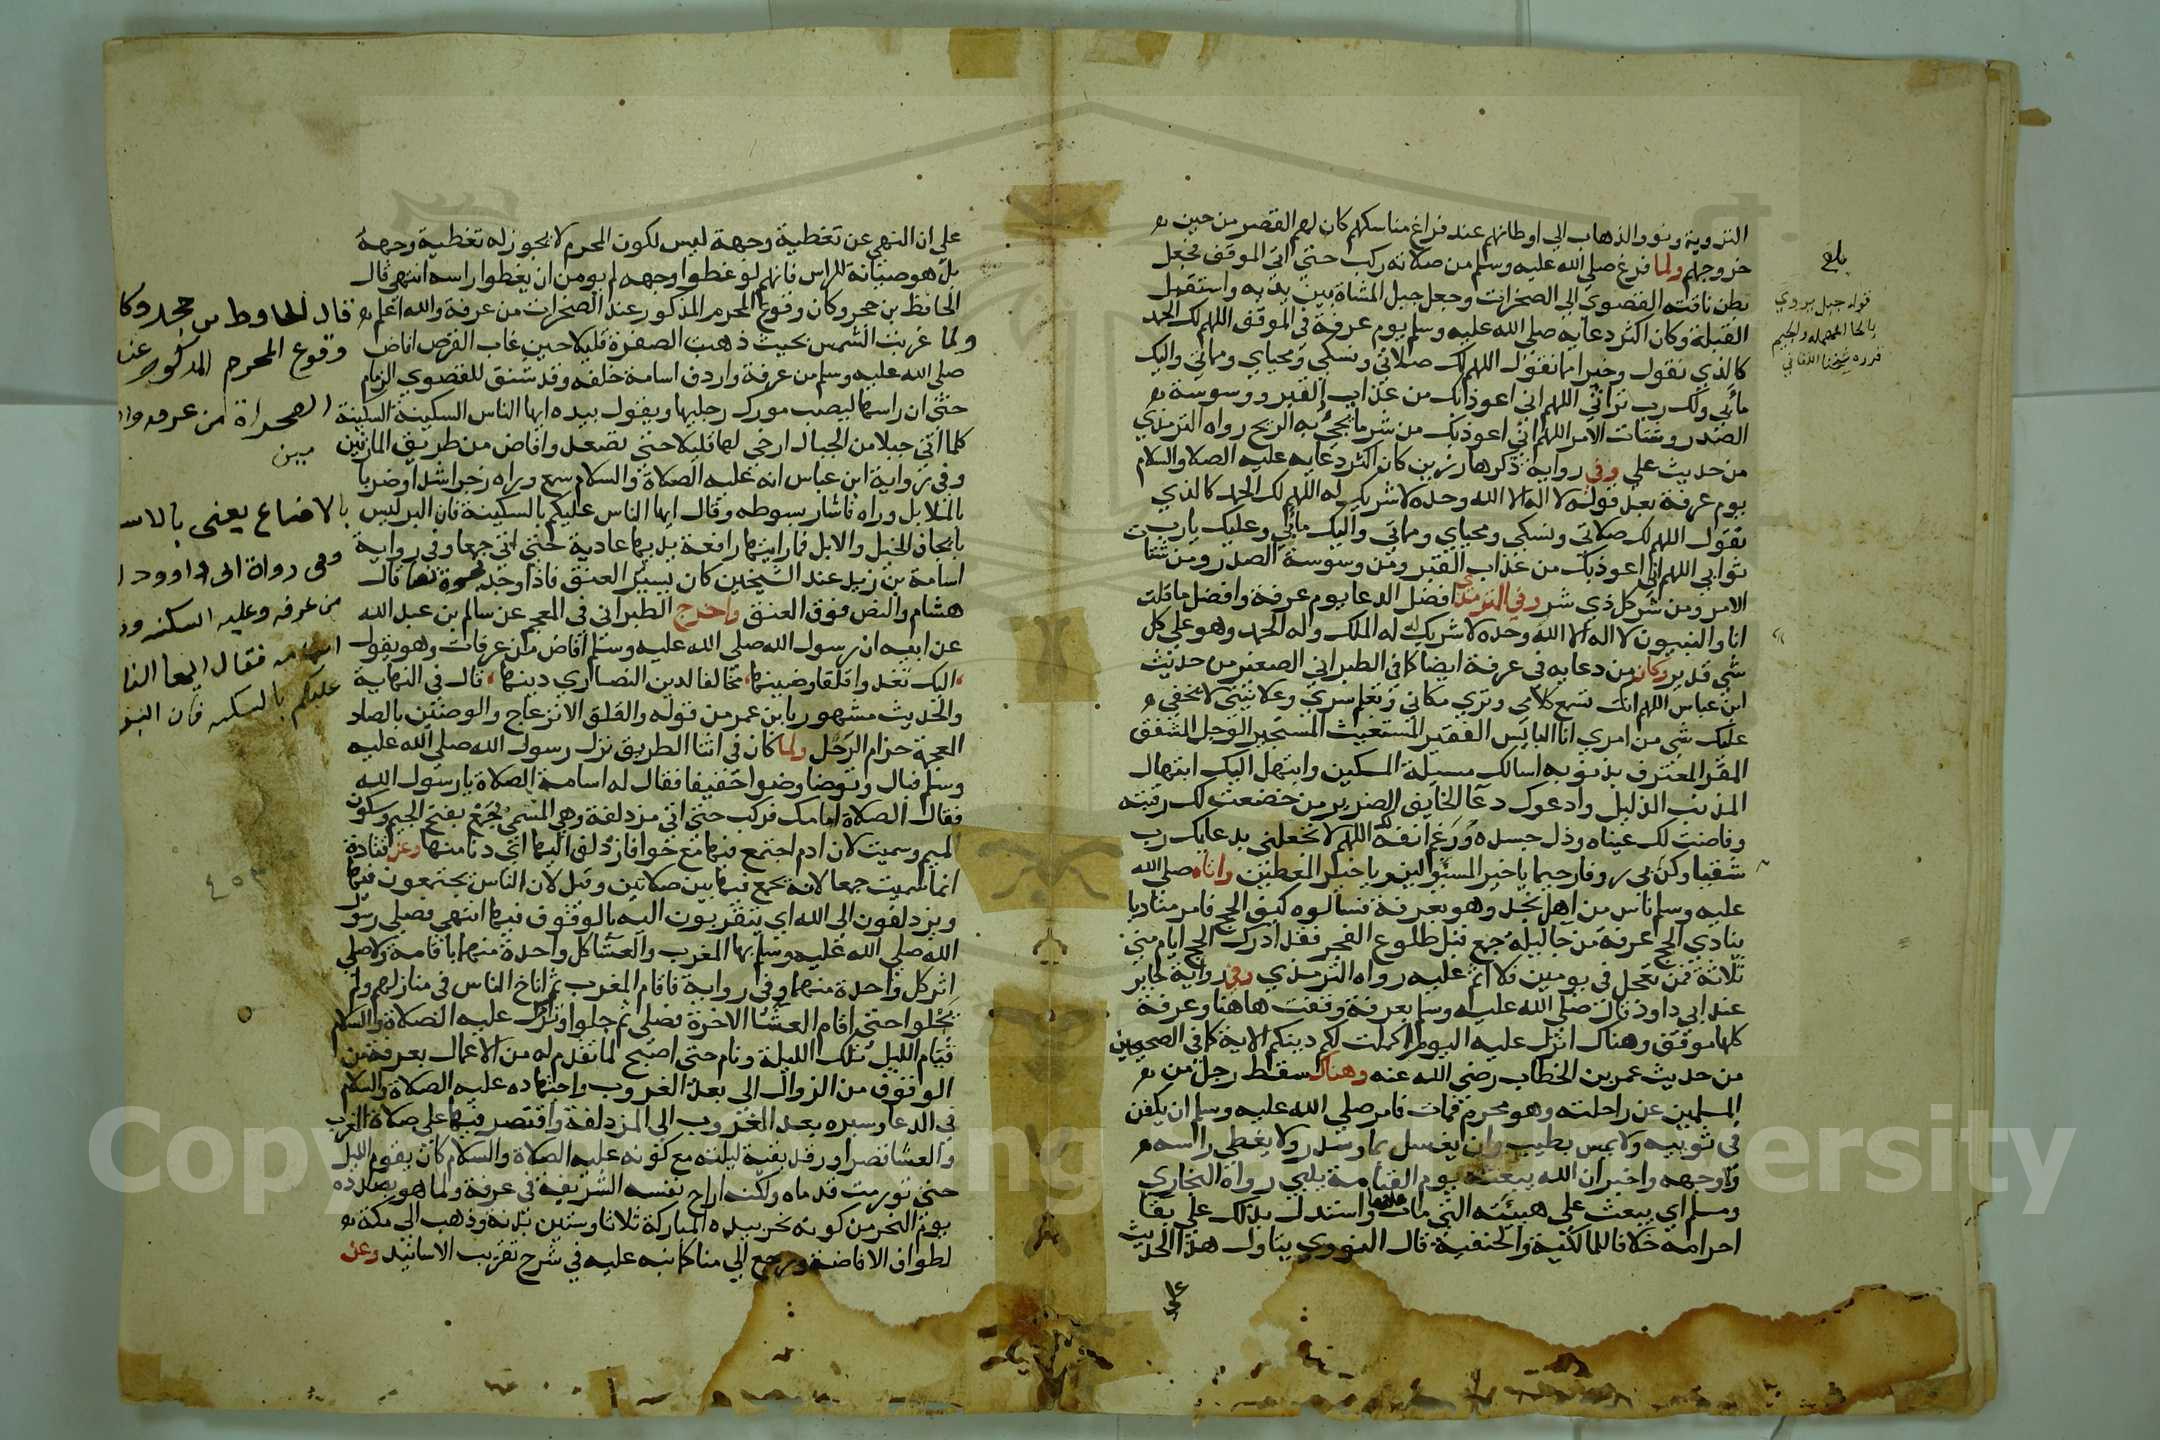 التروية ونووا الذهاب الي اوطانهم عند فراغ مناسكهم كان لهم القصر من حين
خروجهم ولما فرغ صلي الله عليه وسلم من صلاته ركب حتي اتي الموقف فجعل
بطن ناقته القصوي الي الصخرات وجعل جبل المشاة بين يديه واستقبل
القبلة وكان اكثر دعايه صلي الله عليه وسلم يوم عرفة في الموقف اللهم لك الحمد
كالذي نقول وخيرا مما نقول اللهم لك صلاتي ونسكي ومحياي ومماتي واليك
مأبي ولك رب تراثي اللهم اني اعوذ بك من عذاب القبر ووسوسة
الصدر وشتات الامر اللهم اني اعوذ بك من شر ما تجئ به الريح رواه الترمذي
من حديث علي وفي رواية ذكرها رزين كان اكثر دعايه عليه الصلاه والسلام
يوم عرفة بعد قوله لا اله الا الله وحده لا شريك له اللهم لك الحمد كالذي
نقول اللهم لك صلاتي ونسكي ومحياي ومماتي واليك مأبي وعليك يا رب
ثوابي اللهم اني اعوذ بك من عذاب القبر ومن وسوسة الصدر ومن شتات
الامر ومن شر كل ذي شر وفي الترمذي افضل الدعا يوم عرفة وافضل ما قلت
انا والنبيون لا اله الا الله وحده لا شريك له له الملك وله الحمد وهو علي كل
شي قدير وكان من دعايه في عرفة ايضا كما في الطبراني الصغير من حديث
ابن عباس اللهم انك تسمع كلامي وتري مكاني وتعلم سري وعلانيتي لا يخفي
عليك شي من امري انا البايس الفقير المستغيث المستجير الوجل المشفق
المقر المعترف بذنوبه اسالك مسيلة المسكين وابتهل اليك ابتهال
المذنب الذليل وادعوك دعا الخايف الضرير من خضعت لك رقبته
وفاضت لك عيناه وذل جسده ورغم انفه لك اللهم لا تجعلني بدعايك رب
شقيا وكن بي روفا رحيما يا خير المسئولين ويا خير المعطين واتاه صلي الله
عليه وسلم ناس من اهل نجد وهو بعرفة فسالوه كيف الحج فامر مناديا
ينادي الحج عرفة من جا ليلة جمع قبل طلوع الفجر فقد ادرك الحج ايام مني
ثلاثة فمن تعجل في يومين فلا اثم عليه رواه الترمذي وفي رواية جابر
عند ابي داود قال صلي الله عليه وسلم بعرفة وقفت هاهنا وعرفة
كلها موقف وهناك انزل عليه اليوم اكملت لكم دينكم الاية كما في الصحيحين
من حديث عمر بن الخطاب رضي الله عنه وهناك سقط رجل من
المسلمين عن راحلته وهو محرم فمات فامر صلي الله عليه وسلم ان يكفن
في ثوبيه ولا يمس بطيب وان يغسل بما وسدر ولا يغطي راسه
ولا وجهه واخبر ان الله يبعثه يوم القيامة يلبي رواه البخاري
ومسلم اي يبعث علي هيئته التي مات عليها واستدل بذلك علي بقا
احرامه خلافا للمالكية والحنفية قال النووي يتاول هذا الحديث
علي
بلغ
قوله جبل يروي
بالحا المهمله والجيم
قرره شيخنا اللقاني
علي ان النهي عن تغطية وجهه ليس لكون المحرم لا يجوز له تغطية وجهه
بل هو صيانة للراس فانهم لو غطوا وجهه لم يومن ان يغطوا راسه انتهي قال
الحافظ بن حجر وكان وقوع المحرم المذكور عند الصخرات من عرفة والله اعلم
ولما غربت الشمس بحيث ذهبت الصفرة قليلا حين غاب القرص افاض
صلي الله عليه وسلم من عرفة واردف اسامة خلفه وقد شنق للقصوي الزمام
حتي ان راسها ليصيب مورك رجليها ويقول بيده ايها الناس السكينة السكينة
كلما اتي جبلا من الجبال ارخي لها قليلا حتي تصعد وافاض من طريق المازمين
وفي رواية ابن عباس انه عليه الصلاة والسلام سمع وراه زجرا شديدا وضربا
للابل وراه فاشار بسوطه وقال ايها الناس عليكم بالسكينة فان البر ليس
بايجاف الخيل والابل فما رايتها رافعة يديها عادية حتي اتي جمعا وفي رواية
اسامة بن زيد عند الشيخين كان يسير العنق فاذا وجد فجوة نص قال
هشام والنص فوق العنق واخرج الطبراني في المعجم عن سالم بن عبد الله
عن ابيه ان رسول الله صلي الله عليه وسلم افاض من عرفات وهو يقول
اليك تغدوا قلقا وضينها مخالفا لدين النصاري دينها قال في النهاية
والحديث مشهور بابن عمر من قوله والقلق الانزعاج والوضين بالضاد
المعجمة حزام الرحل ولما كان في اثنا الطريق نزل رسول الله صلي الله عليه
وسلم فبال وتوضا وضوا خفيفا فقال له اسامة الصلاة يا رسول الله
فقال الصلاة امامك فركب حتي اتي مزدلفة وهي المسمي بجمع بفتح الجيم وسكون
الميم وسميت لان ادم اجتمع فيها مع حوا فازدلف اليها اي دنا منها وعن قتادة
انما سميت جمعا لانه يجمع فيها بين صلاتين وقيل لان الناس يجتمعون فيها
ويزدلفون الي الله اي يتقربون اليه بالوقوف فيها انتهي فصلي رسول
الله صلي الله عليه وسلم بها المغرب والعشا كل واحدة منهما باقامة ولا صلي
اثر كل واحدة منهما وفي رواية فاقام المغرب ثم اناخ الناس في منازلهم ولم
يحلوا حتي اقام العشا الاخرة فصلي ثم حلوا وترك عليه الصلاة والسلام
قيام الليل تلك الليلة ونام حتي اصبح لما تقدم له من الاعمال بعرفة من
الوقوف من الزوال الي بعد الغروب واجتهاده عليه الصلاة والسلام
في الدعا وسيره بعد الغروب الي المزدلفة واقتصر فيها علي صلاة المغرب
والعشا قصرا ورقد بقية ليلته مع كونه عليه الصلاة والسلام كان يقوم الليل
حتي تورمت قدماه ولكنه اراح نفسه الشريفة في عرفة ولما هو بصدده
يوم النحر من كونه نحر بيده المباركة ثلاثا وستين بدنة وذهب الي مكة
لطواف الافاضة ورجع الي منا كما نبه عليه في شرح تقريب الاسانيد وعن
قال الحاوط بن حجر وكا
وقوع المحرم المدكور عند
الصحراة من عرفه وا
بالاضاع يعنى بالاس
وفى رواة ابى داوود
من عرفه وعليه السكنه ور
اسامه فقال ايها النا
عليكم بالسكنه فان البر
Copyright King Saud University